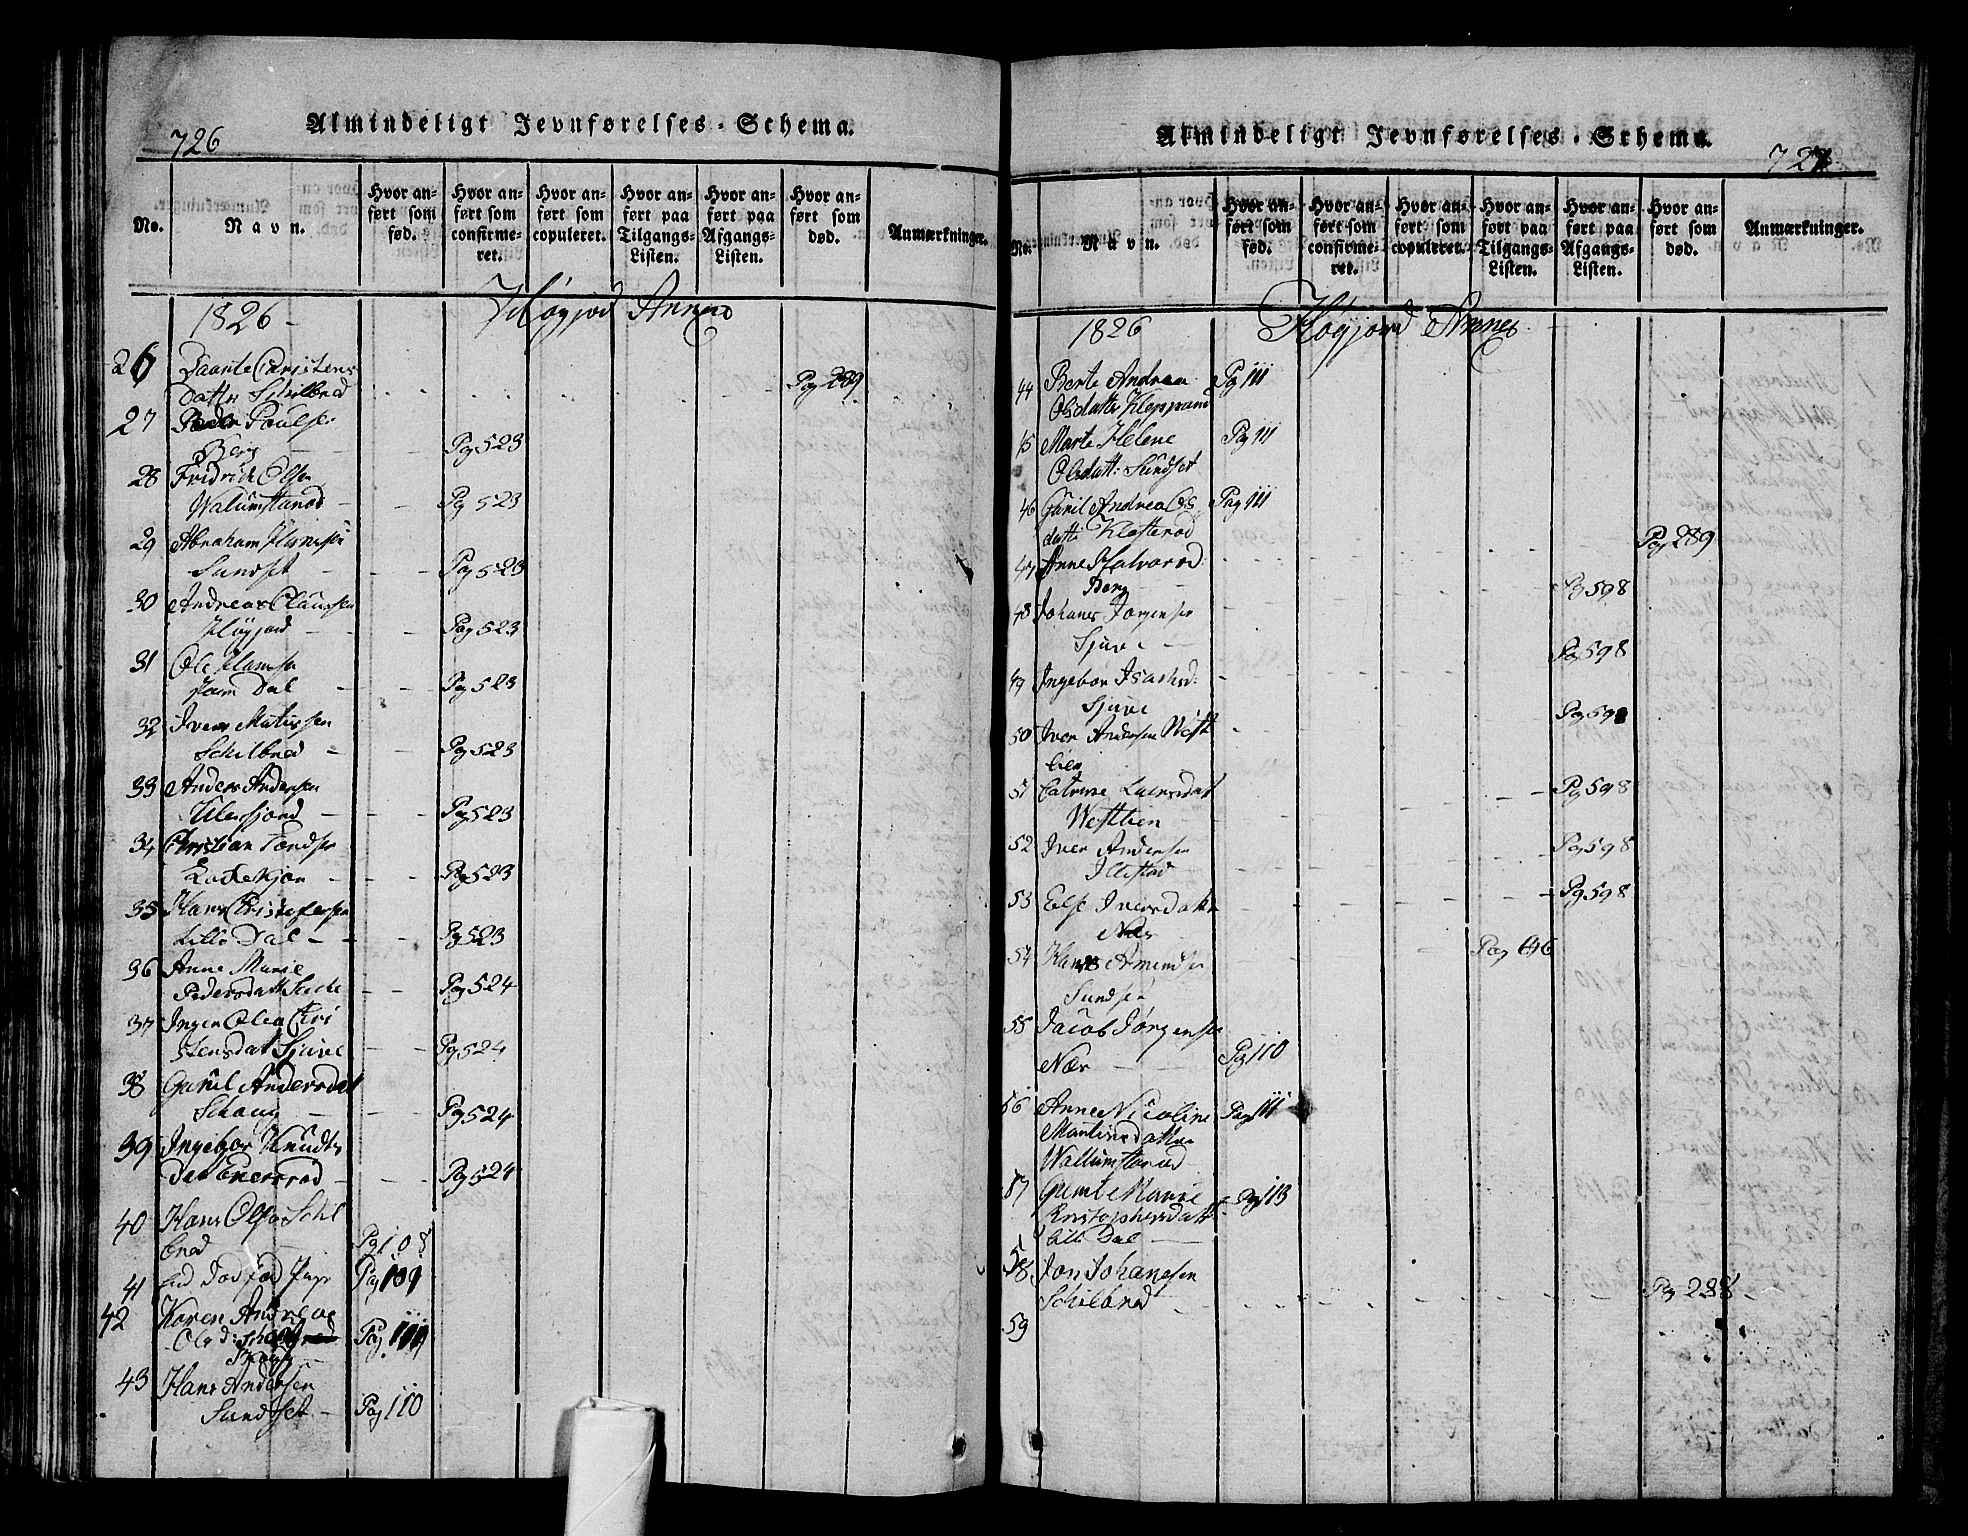 726
Almindeligt Jevnførelses-Schema.
No.
Navn.
Hvor anført som fød.
Hvor anført som confirmeret.
Hvor anført som copuleret.
Hvor anført paa Tilgangs-Listen.
Hvor anført paa Afgangs-Listen.
Hvor anført som død.
Anmærkninger.
1826 - Høyjord Annex
26 Christens
Datter Schilbred Pag 289
27 Peder Poulse
Berg Pag 523
28 Fridrich Olsen
Walumstanød Pag 523
29 Abraham Hansen
Sundset Pag 523
30 Andreas Claussen
Høyjord Pag 523
31 Ole Hansen
Dal Pag 523
32 Iver Matissen
Schilbred Pag 523
33 Anders Andersen
Pag 523
34 Christian
Pag 523
35 Hans Christofersen
Lille Dal Pag 523
36 Anne Marie
Pedersdatt Pag 524
37 Inger Olea Chri
stensdat Sjuve Pag 524
38 Guril Andersdat
Schoug Pag 524
39 Ingebor Knudts
Dat Enersrød Pag 524
40 Hans Olsen Schil
bred Pag 108
41 End Dødfød Pige Pag 109
42 Karen Andrea
Olsd: Pag 110
43 Hans Andersen
Sundset Pag 110
Almindeligt Jevnførelses-Schema.
727
No.
Navn.
Hvor anført som fød.
Hvor anført som confirmeret.
Hvor anført som copuleret.
Hvor anført paa Tilgangs-Listen.
Hvor anført paa Afgangs-Listen.
Hvor anført som død.
Anmærkninger.
1826 Høyjord Annex
44 Berte Andrea Pag 111
Olsdatter Kleppand
45 Marte Helene Pag 111
Olsdatt: Sundset
46 Guril Andrea Ols Pag 111
datt: Klosterød
47 Anne Halvorsd: Pag 289
Berg
48 Johanes Jørgensen Pag 598
Sjuve
49 Ingebor Isachsd: Pag 598
Sjuve
50 Iver Andersen West Pag 598
lien
51 Catrine Larsdat Pag 598
Westlien
52 Iver Andersen Pag 598
Illestad
53 Else Iversdatter Pag 598
Nes
54 Hans Amundsen Pag 646
Sundset
55 Jacob Jørgensen
Nær Pag 110
56 Anne Nicoline Pag 111
Martinsdatter
Wallumstanød
57 Marie Pag 113
Kristophersdatt
Lille Dal
58 Jon Johanesen
Schilbred Pag 288
59